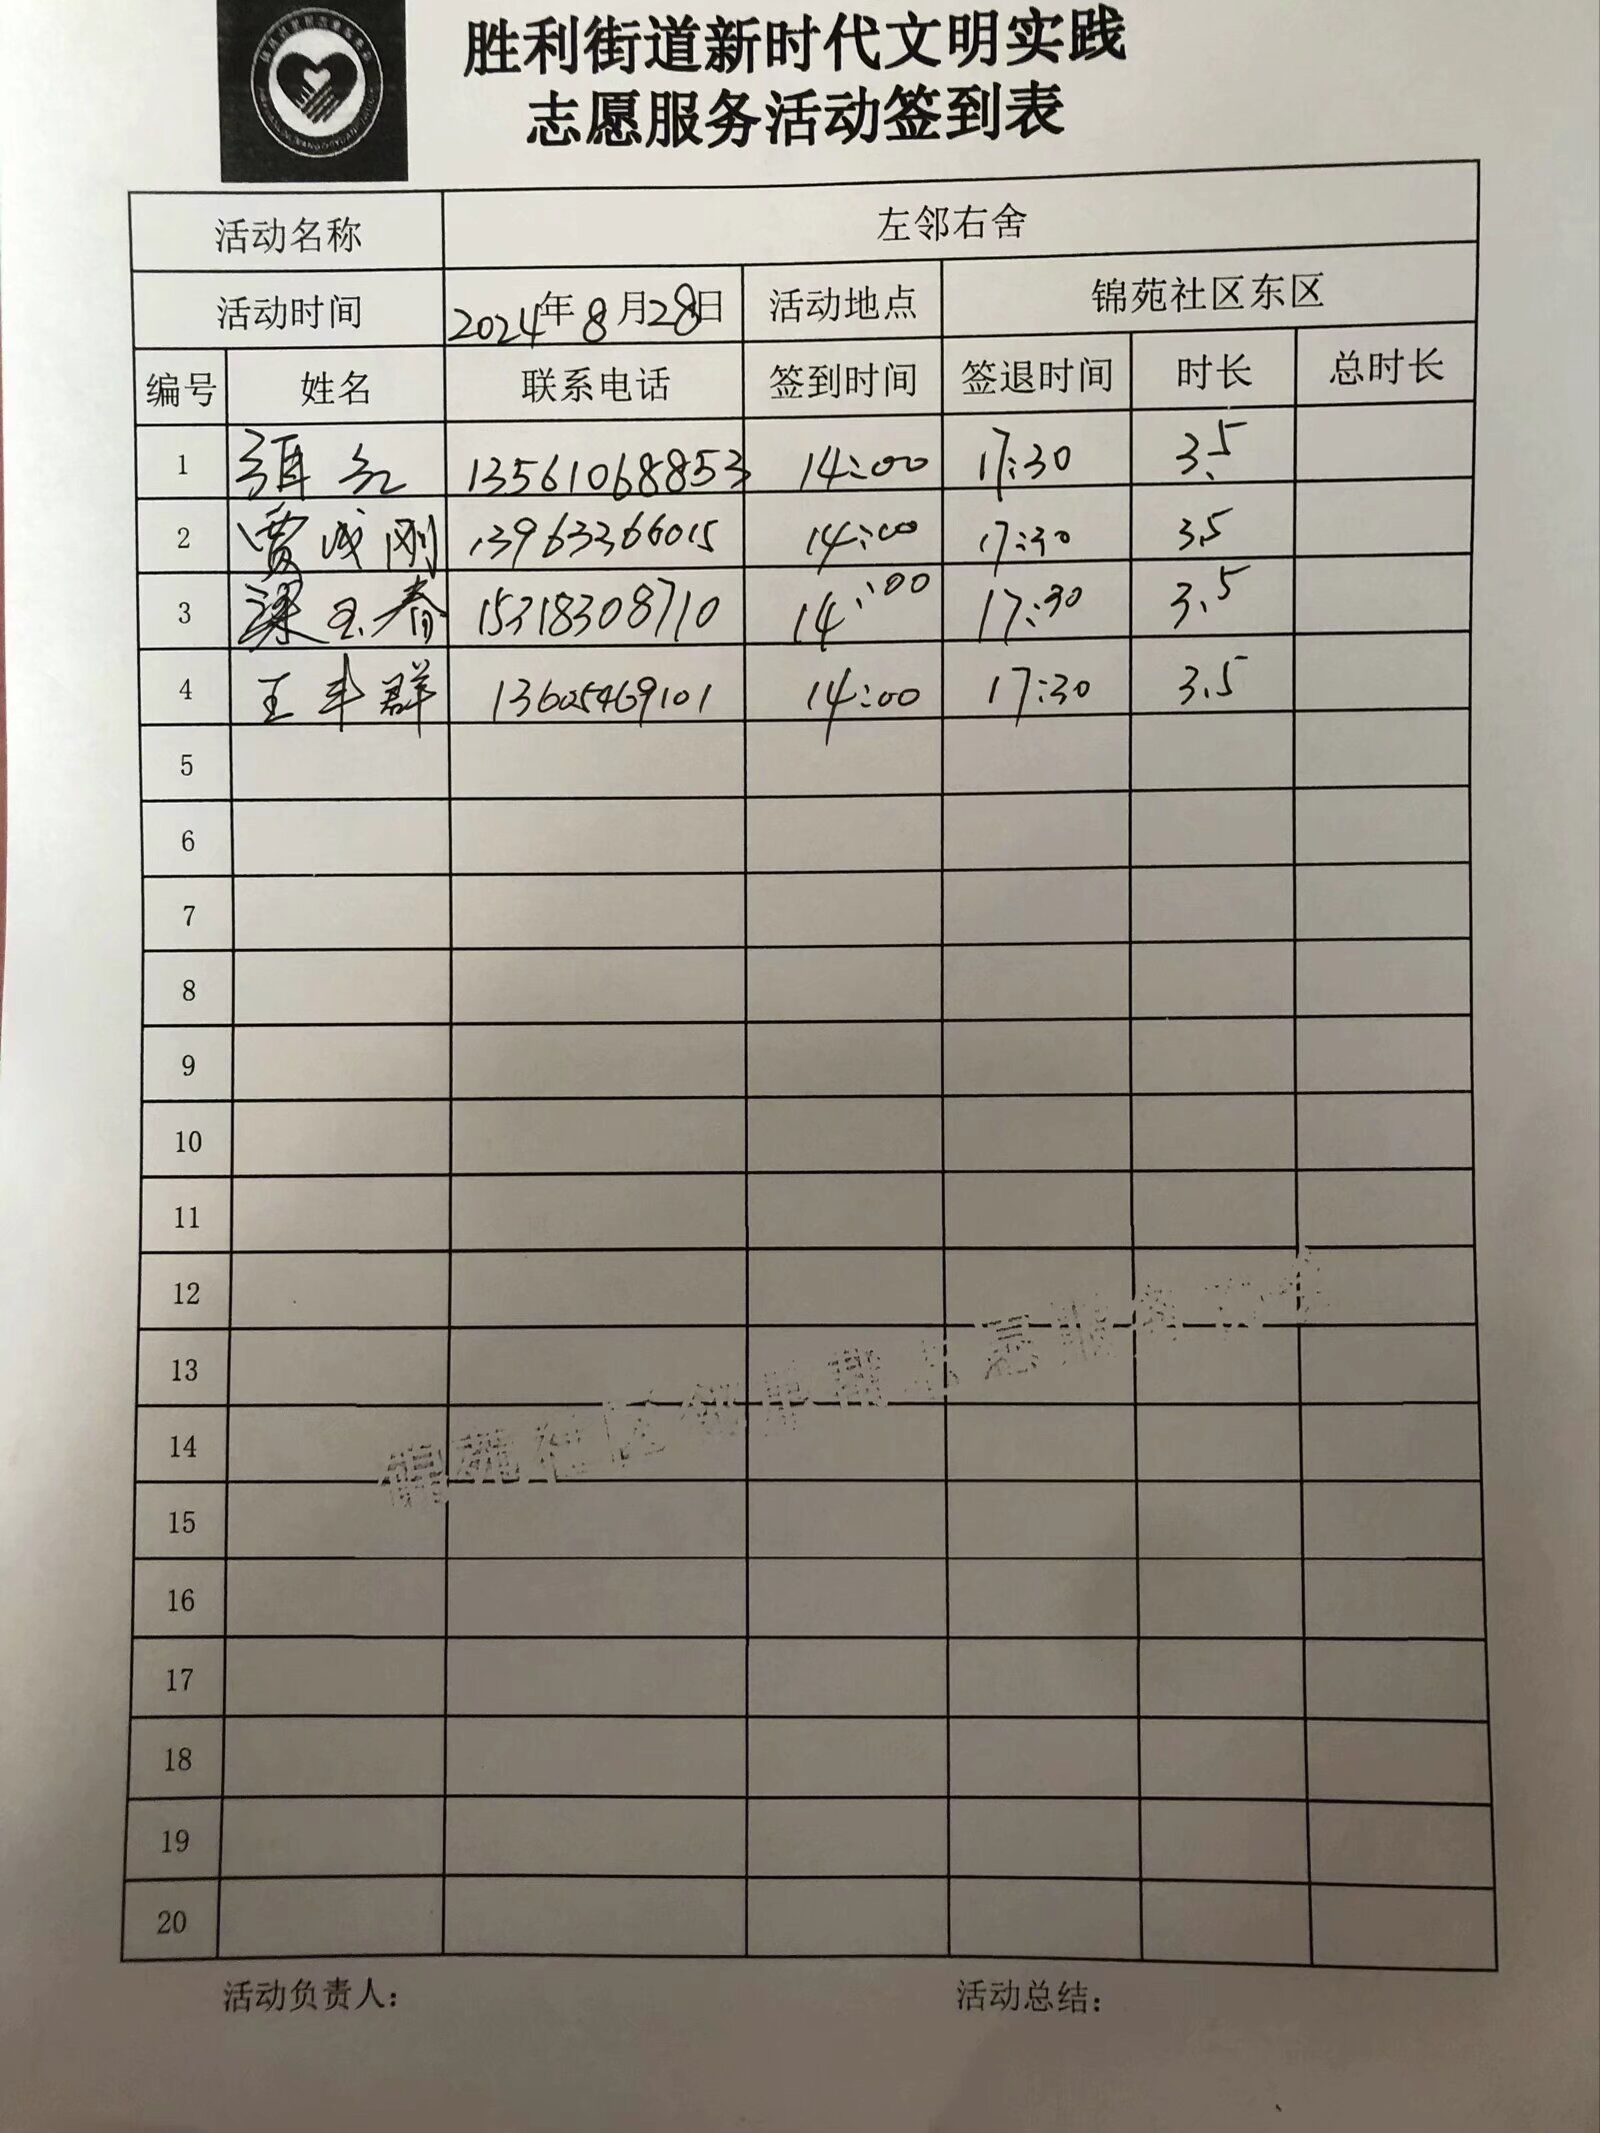 胜利街道新时代文明实践
志愿服务活动签到表
活动名称 左邻右舍
活动时间 2024年8月28日 活动地点 锦苑社区东区
编号 姓名 联系电话 签到时间 签退时间 时长 总时长
1 13561068853 14:00 17:30 3.5
2 贾成刚 13963366015 14:00 17:30 3.5
3 梁玉春 15318308710 14:00 17:30 3.5
4 王丰群 13605469101 14:00 17:30 3.5
5
6
7
8
9
10
11
12
13
14
15
16
17
18
19
20
活动负责人： 活动总结：